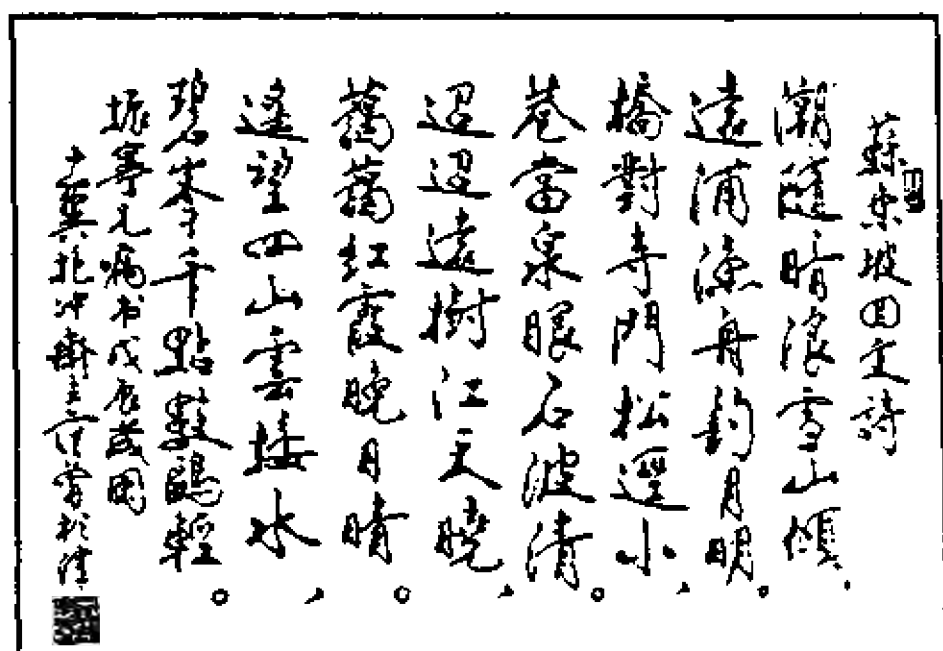 蘇東坡回文詩
潮隨暗浪雪山傾
遠浦漁舟釣月明
橋對寺門松逕小
巷當泉眼石波清
迢迢遠樹江天曉
藹藹紅霞晚日晴
遙望四山雲接水
碧峯千點數鷗輕
振兄嘱书戊辰歲
十翼抱冲齋主范曾於津